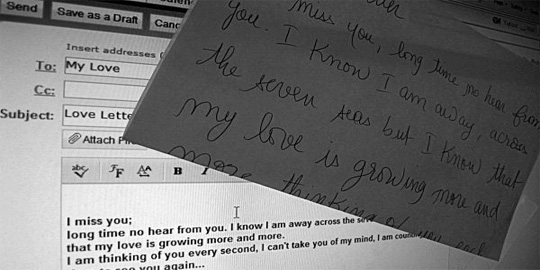 Send
Save as a Draft
Canc
Insert addresses
To: My Love
Cc:
Subject: Love Lette
Attach Fi
B I
I miss you;
long time no hear from you. I know I am away across the se
that my love is growing more and more.
I am thinking of you every second, I can't take you of my mind, I am coun
see you again...
miss you, long time no hear from
you. I know I am away, across
the seven seas but I know that
my love is growing more and
more thinking of you each